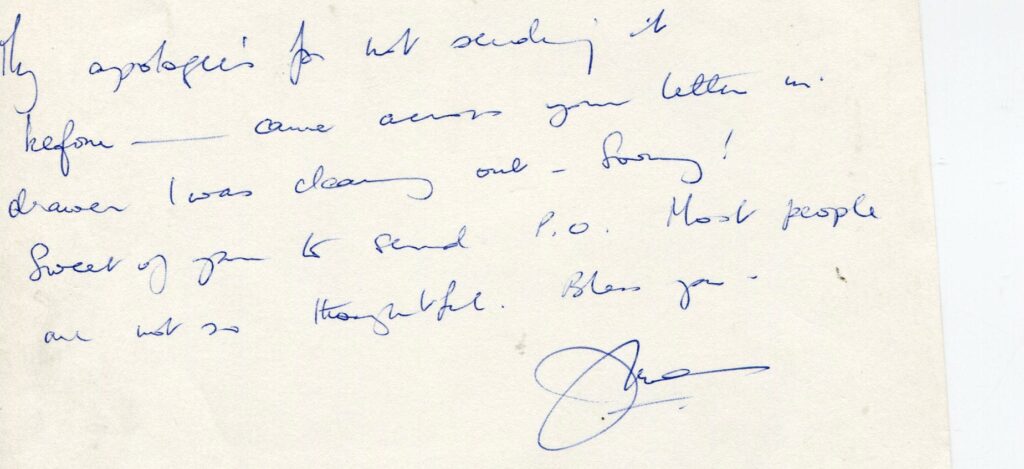 My apologies for not sending it
before — came across your letter in
drawer I was cleaning out – Sorry!
Sweet of you to send P.O. Most people
are not so thoughtful. Bless you –